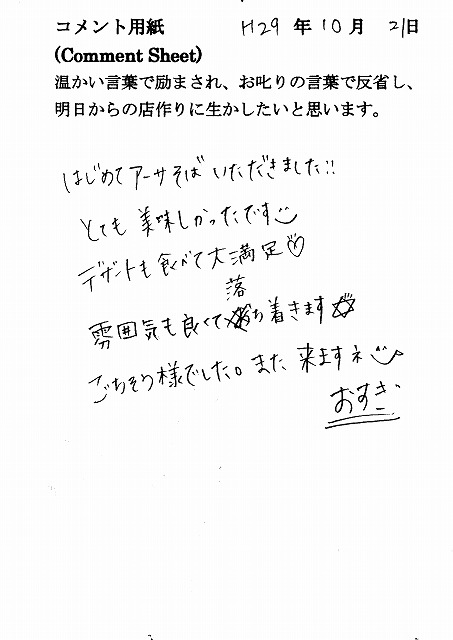 コメント用紙 H29 年 10 月 21日
(Comment Sheet)
温かい言葉で励まされ、お叱りの言葉で反省し、
明日からの店作りに生かしたいと思います。
はじめてアーサそばいただきました!!
とても美味しかったです
デザートも食べて大満足♡
雰囲気も良くて落ち着きます☆
ごちそう様でした。また来ますネ
おすぎ